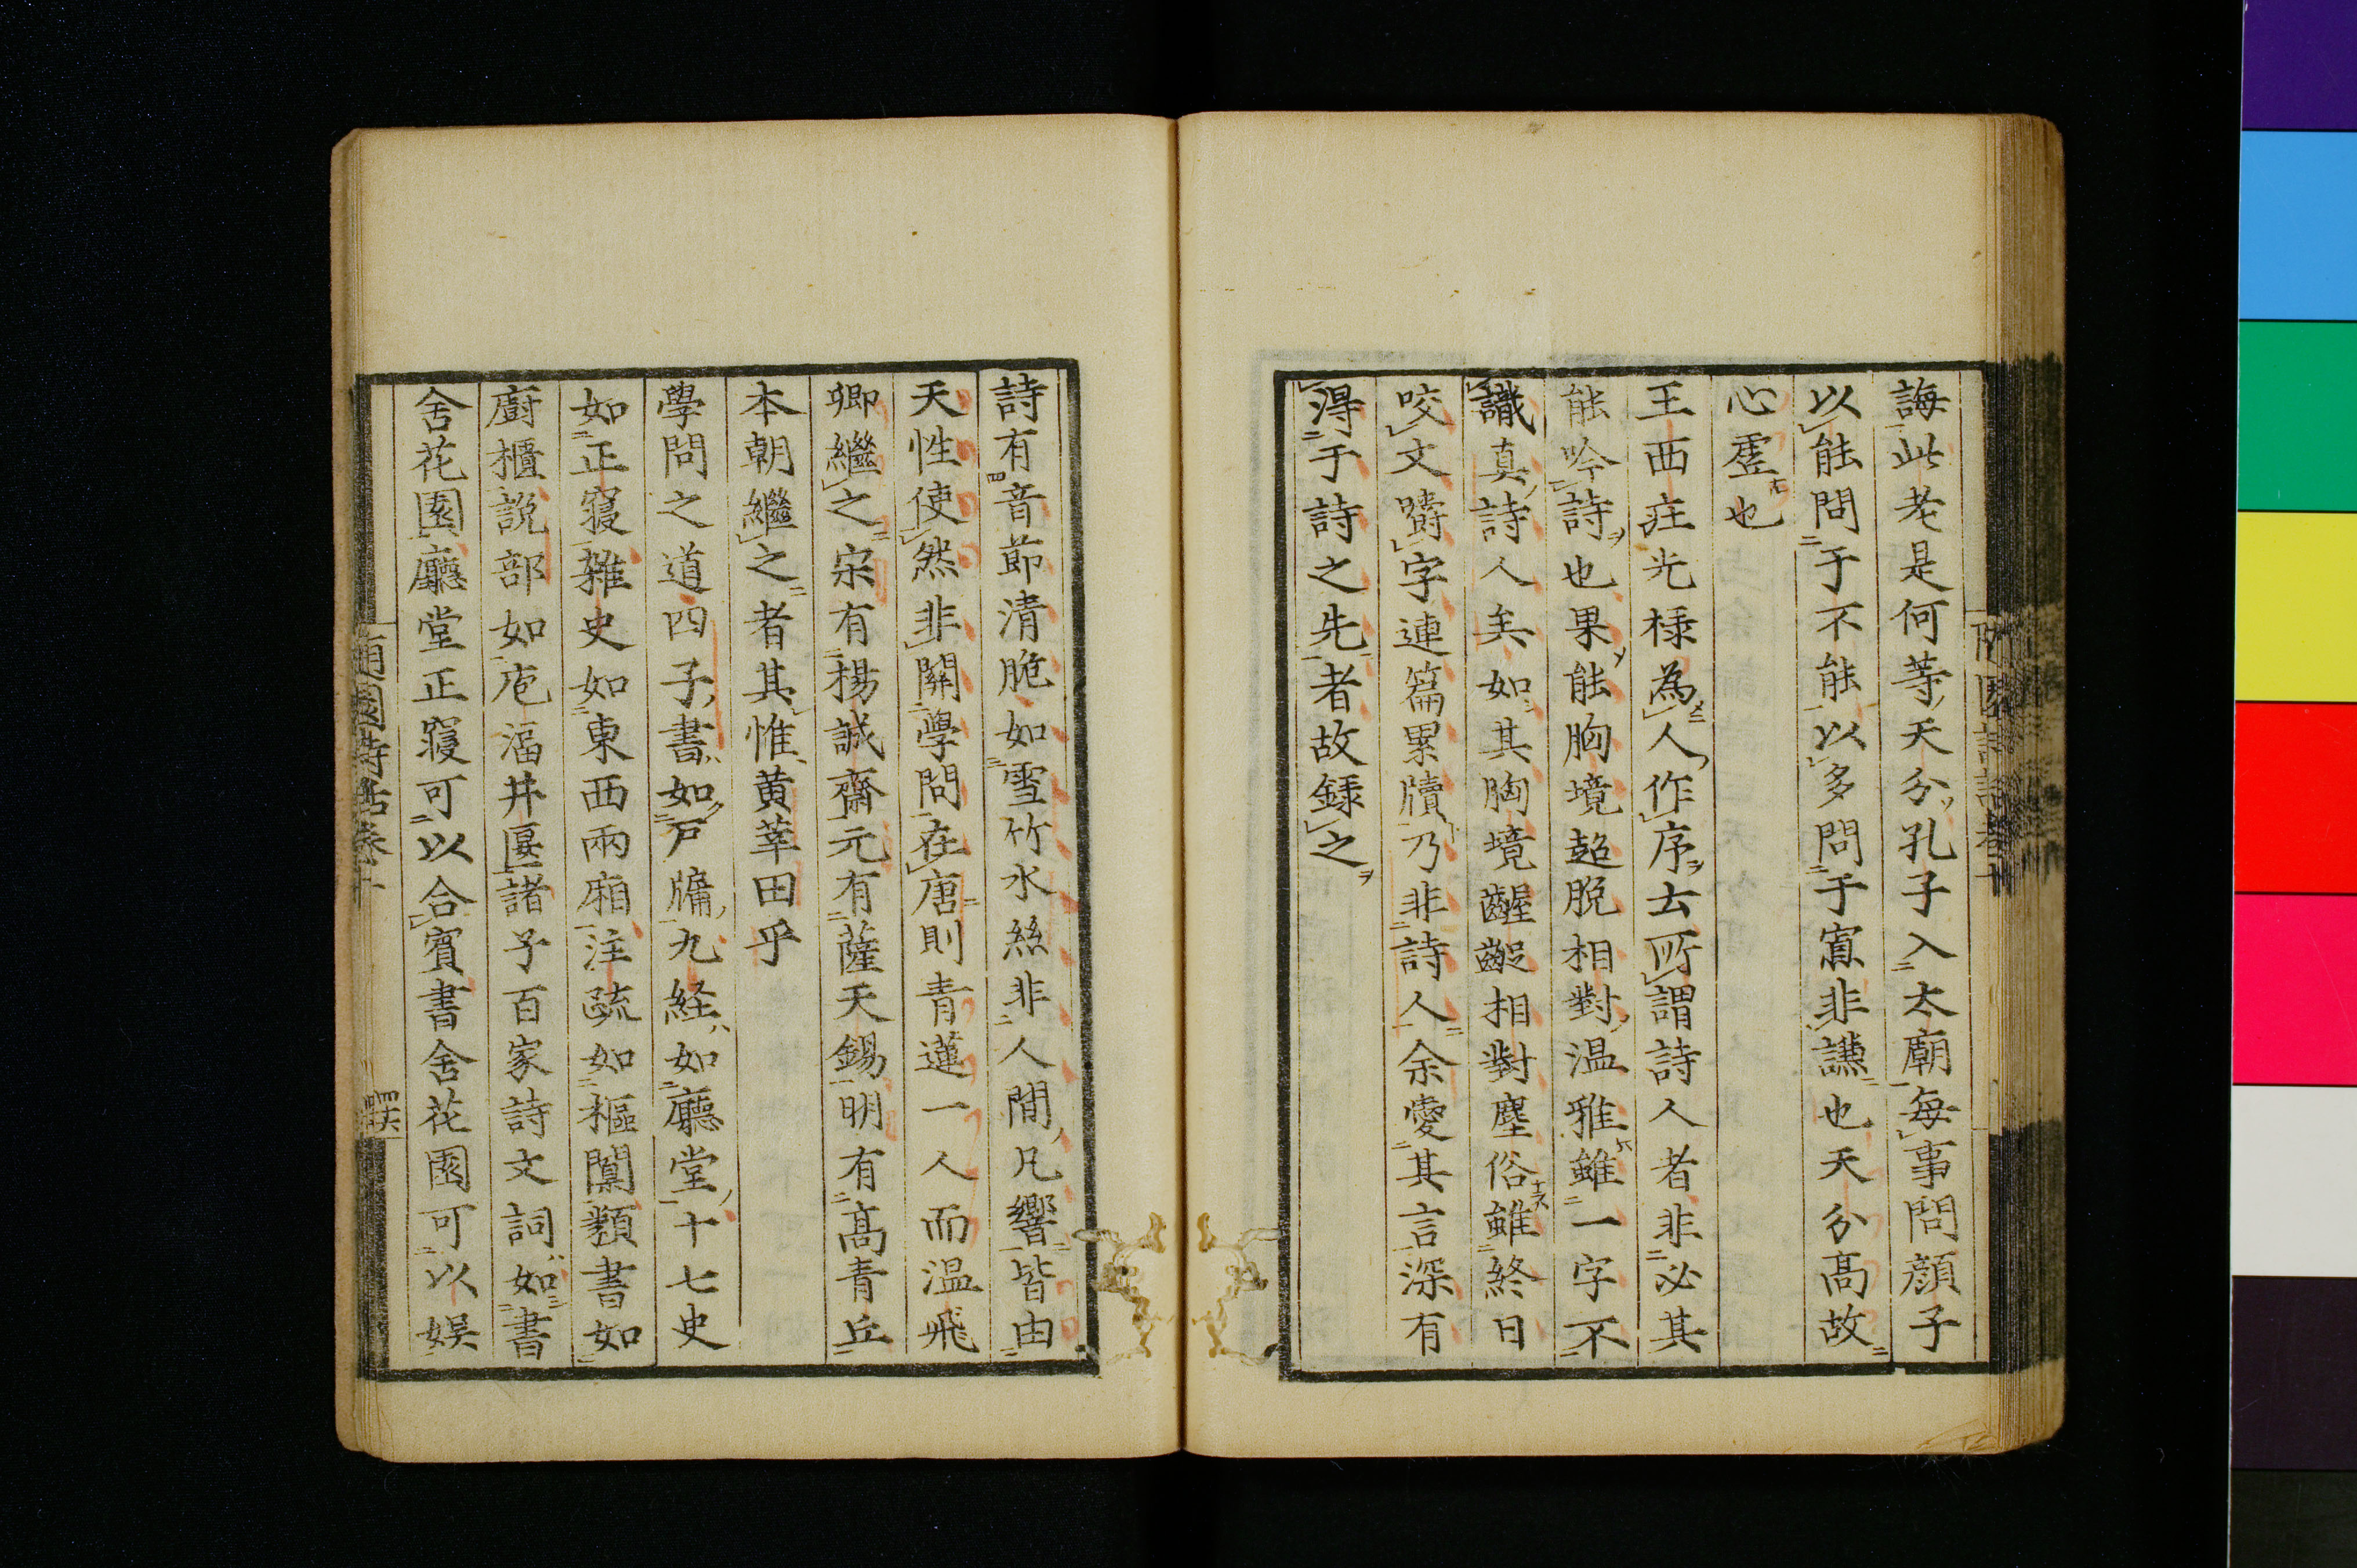 誨此老是何等天分孔子入太廟每事問顔子
以能問于不能以多問于寡非謙也天分高故
心虛也
王西莊光祿為人作序云所謂詩人者非必其
能吟詩也果能胸境超脫相對温雅雖一字不
識真詩人矣如其胸境齷齪相對塵俗雖終日
咬文嚼字連篇累牘乃非詩人余愛其言深有
得于詩之先者故錄之
詩有音節清脆如雪竹水絲非人間凡響皆由
天性使然非關學問在唐則青蓮一人而温飛
卿繼之宋有楊誠齋元有薩天錫明有高青丘
本朝繼之者其惟黄莘田乎
學問之道四子書如戸牖九経如廳堂十七史
如正寢雜史如東西兩廂注疏如樞闑類書如
廚櫃説部如庖湢井匽諸子百家詩文詞如書
舍花園廳堂正寢可以合賓書舍花園可以娱